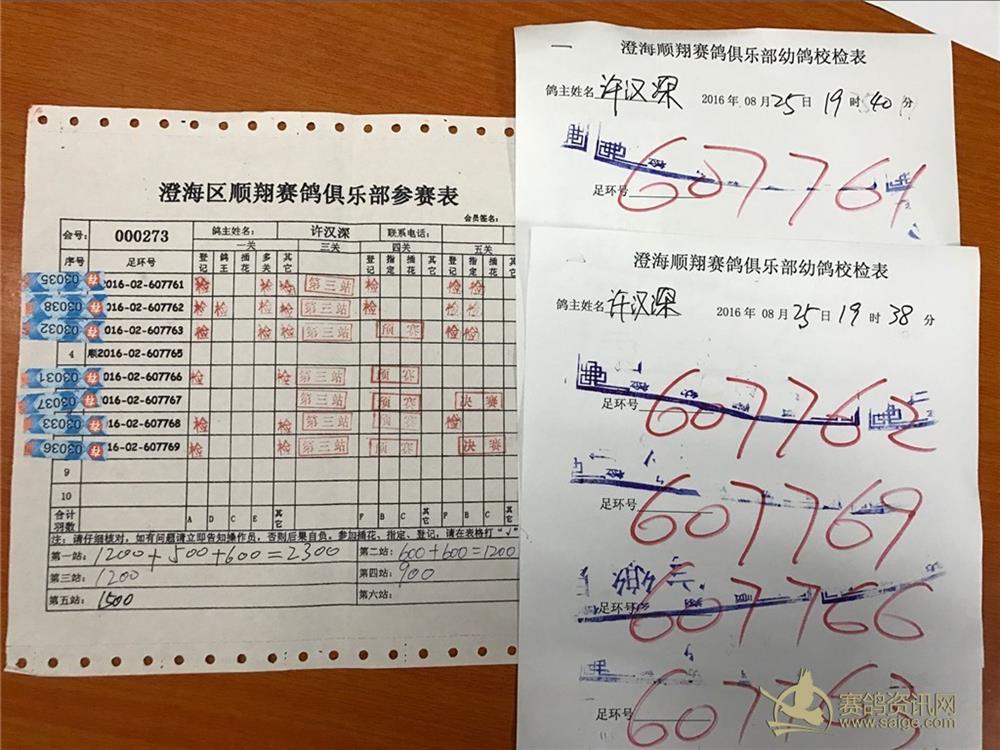 澄海区顺翔赛鸽俱乐部参赛表
会员签名:
会号: 000273 鸽主姓名: 许汉深 联系电话:
一关 三关 四关 五关
序号 足环号 登记 鸽王 插花 多关 其它 登记 指定 插花 其它 登记 指定 插花 其它
03035 2016-02-607761 检 检 检 第三站 检 检 检
03038 016-02-607762 检 检 检 检 第三站 检 检
03032 016-02-607763 检 检 检 第三站 预赛 检 检
4 顺2016-02-607765
03031 16-02-607766 检 检 第三站 预赛
03037 16-02-607767 第三站 预赛 决赛
03033 16-02-607768 检 检 第三站 预赛 检
03036 16-02-607769 检 检 第三站 预赛 决赛
9
10
合计羽数 A D C E 其它 F B C 其它 F B C
注: 请仔细核对, 如有问题请立即告知操作员, 否则后果自负。参加插花、指定、登记, 请在表格打"√"
第一站: 1200+500+600=2300 第二站: 600+600=1200
第三站: 1200 第四站: 900
第五站: 1500 第六站:
澄海顺翔赛鸽俱乐部幼鸽校检表
鸽主姓名 许汉深 2016年08月25日19时40分
足环号 607761
澄海顺翔赛鸽俱乐部幼鸽校检表
鸽主姓名 许汉深 2016年08月25日19时38分
足环号 607762
足环号 607769
足环号 607766
足环号 607763
赛鸽资讯网
www.saige.com